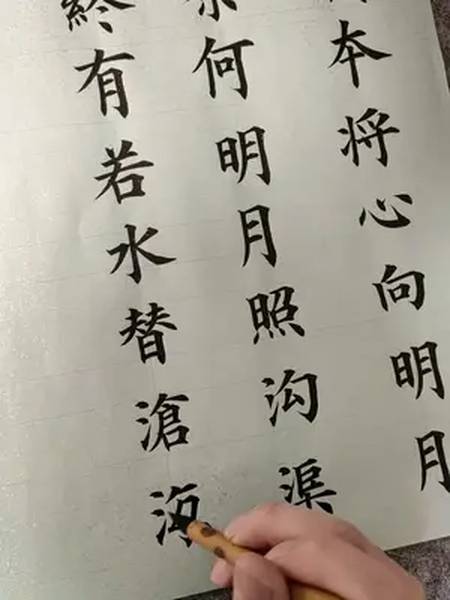 本将心向明月
何明月照沟渠
終有若水替滄海